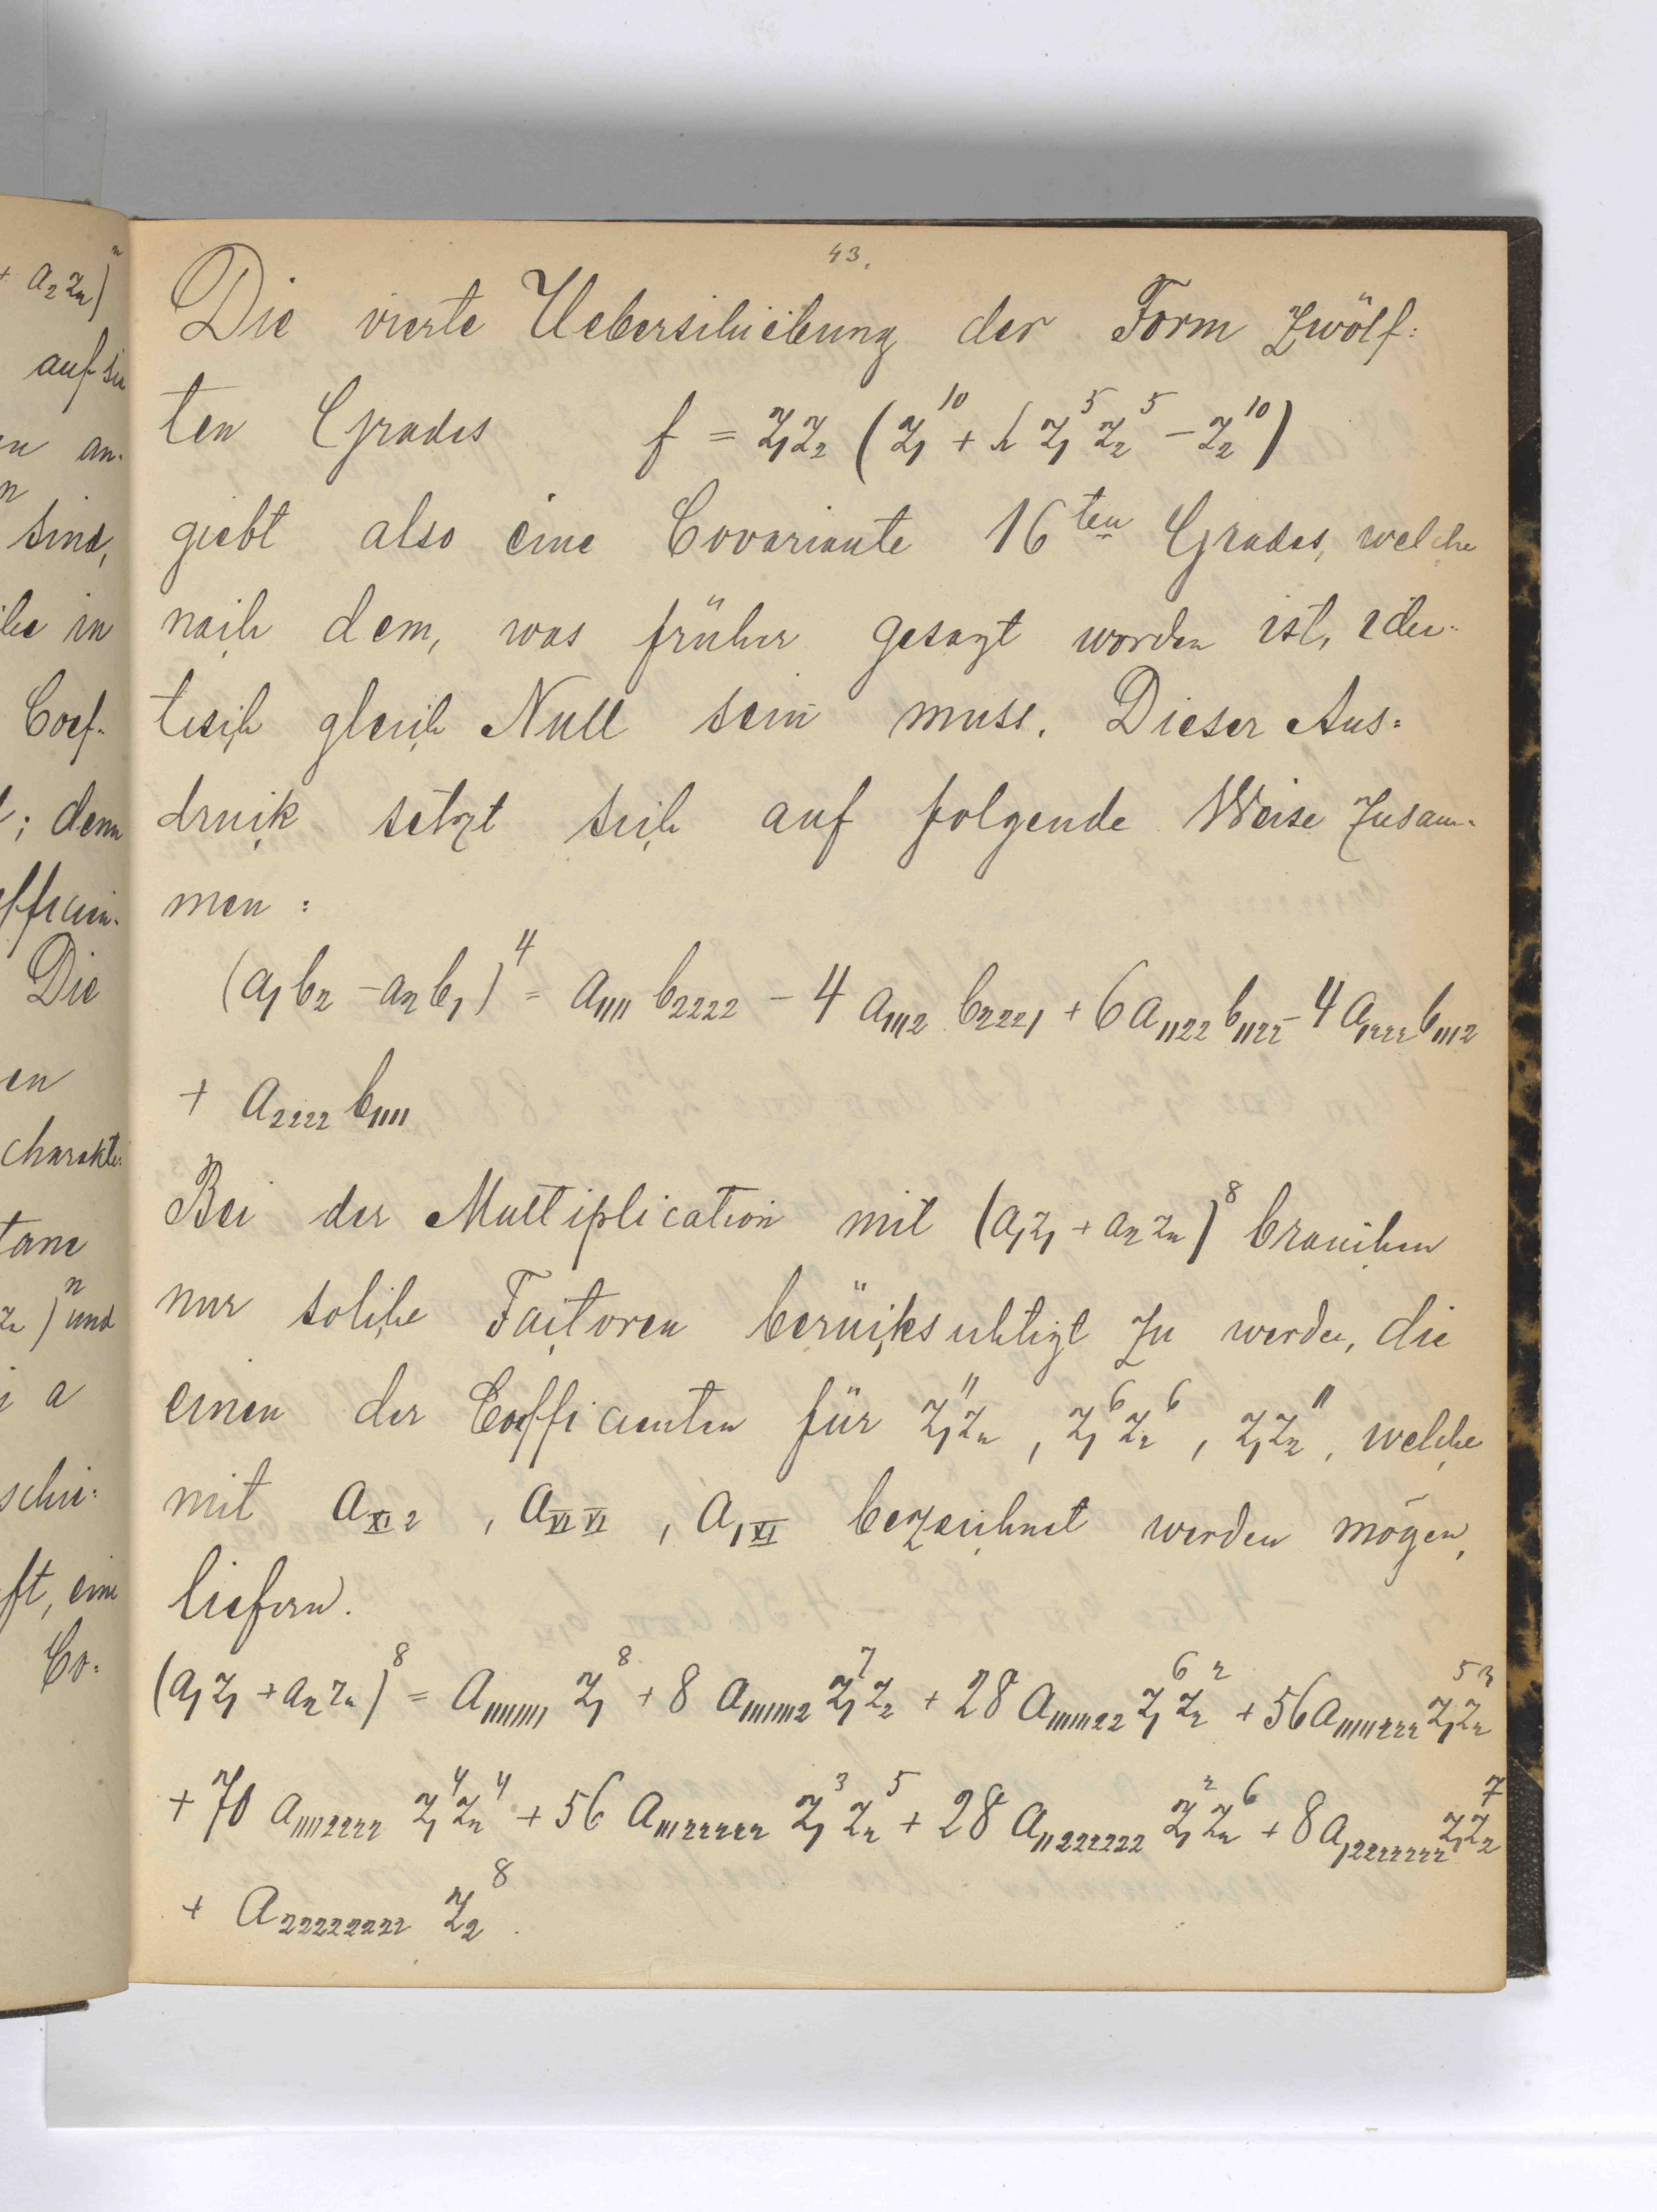 43.
Die vierte Ueberschiebung der Form zwölf-
ten Grades f = z₁z₂ (z₁¹⁰ + h z₁⁵ z₂⁵ − z₂¹⁰)
giebt also eine Covariante 16ten Grades, welche
nach dem, was früher gesagt worden ist, iden-
tisch gleich Null sein muss. Dieser Aus-
druck setzt sich auf folgende Weise zusam-
men :
(a₁b₂ − a₂b₁)⁴ = a₁₁₁₁ b₂₂₂₂ − 4 a₁₁₁₂ b₂₂₂₁ + 6 a₁₁₂₂ b₁₁₂₂ − 4 a₁₂₂₂ b₁₁₁₂
+ a₂₂₂₂ b₁₁₁₁
Bei der Multiplication mit (a₁z₁ + a₂z₂)⁸ brauchen
nur solche Factoren berücksichtigt zu werden, die
einen der Coefficienten für z₁¹¹z₂ , z₁⁶z₂⁶ , z₁z₂¹¹, welche
mit a_XI 2 , a_VI VI , a_1 XI bezeichnet werden mögen,
liefern.
(a₁z₁ + a₂z₂)⁸ = a₁₁₁₁₁₁₁₁ z₁⁸ + 8 a₁₁₁₁₁₁₁₂ z₁⁷z₂ + 28 a₁₁₁₁₁₁₂₂ z₁⁶z₂² + 56 a₁₁₁₁₁₂₂₂ z₁⁵z₂³
+ 70 a₁₁₁₁₂₂₂₂ z₁⁴z₂⁴ + 56 a₁₁₁₂₂₂₂₂ z₁³z₂⁵ + 28 a₁₁₂₂₂₂₂₂ z₁²z₂⁶ + 8 a₁₂₂₂₂₂₂₂ z₁z₂⁷
+ a₂₂₂₂₂₂₂₂ z₂⁸.